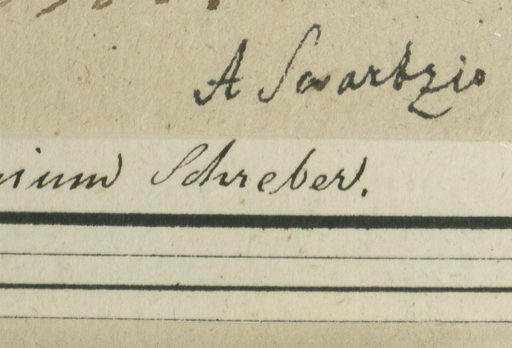 A Swartzio
Schreber.